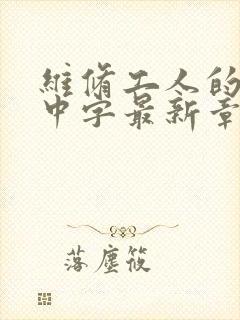 維脩工人的
中字最新章
落塵筱